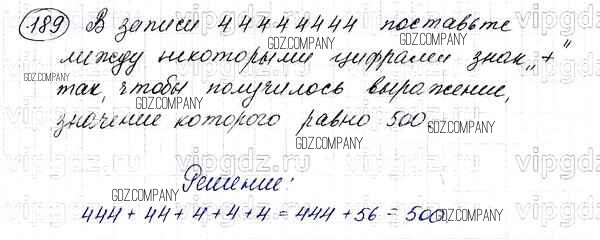 189 В записи 44444444 поставьте
между некоторыми цифрами знак „+"
так, чтобы получилось выражение,
значение которого равно 500.
Решение:
444 + 44 + 4 + 4 + 4 = 444 + 56 = 500
GDZ.COMPANY
GDZ.COMPANY
GDZ.COMPANY
GDZ.COMPANY
GDZ.COMPANY
GDZ.COMPANY
GDZ.COMPANY
GDZ.COMPANY
vipgdz.ru
vipgdz.ru
vipgdz.ru
vipgdz.ru